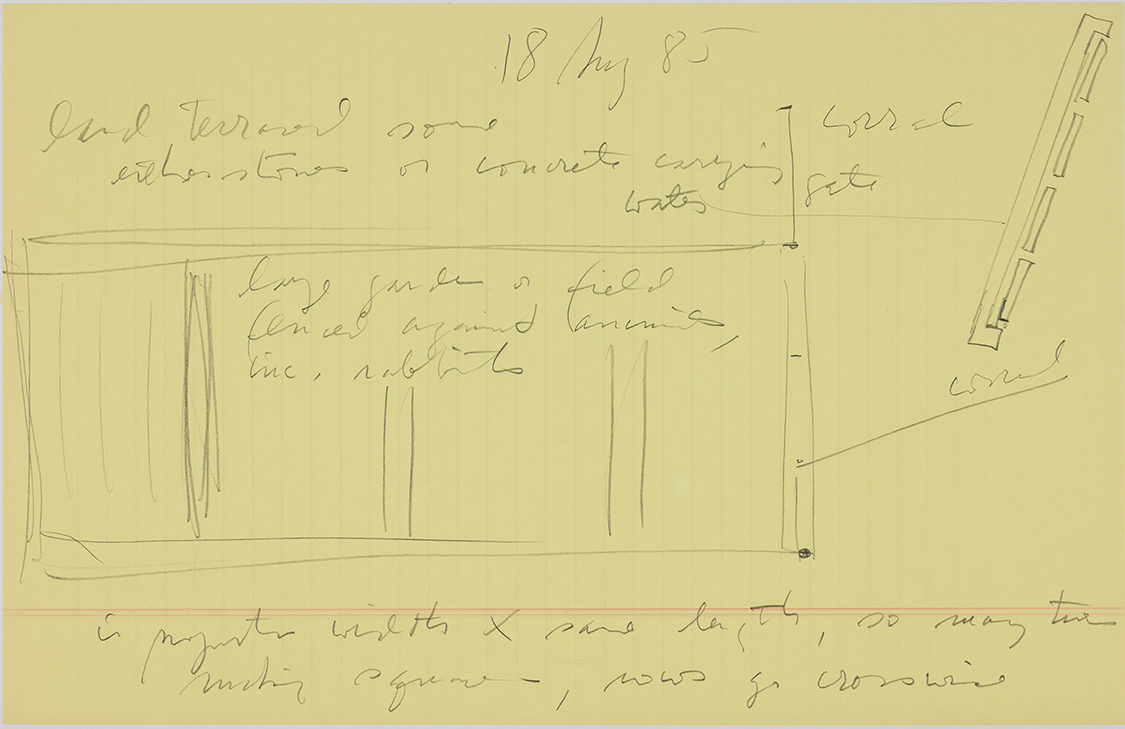 18 Aug 85
land terraced some
either stones or concrete carrying
water
corral
gate
large garden or field
fenced against animals,
inc. rabbits
corral
in proportion widths X same length, so many times
making squares, rows go crosswise